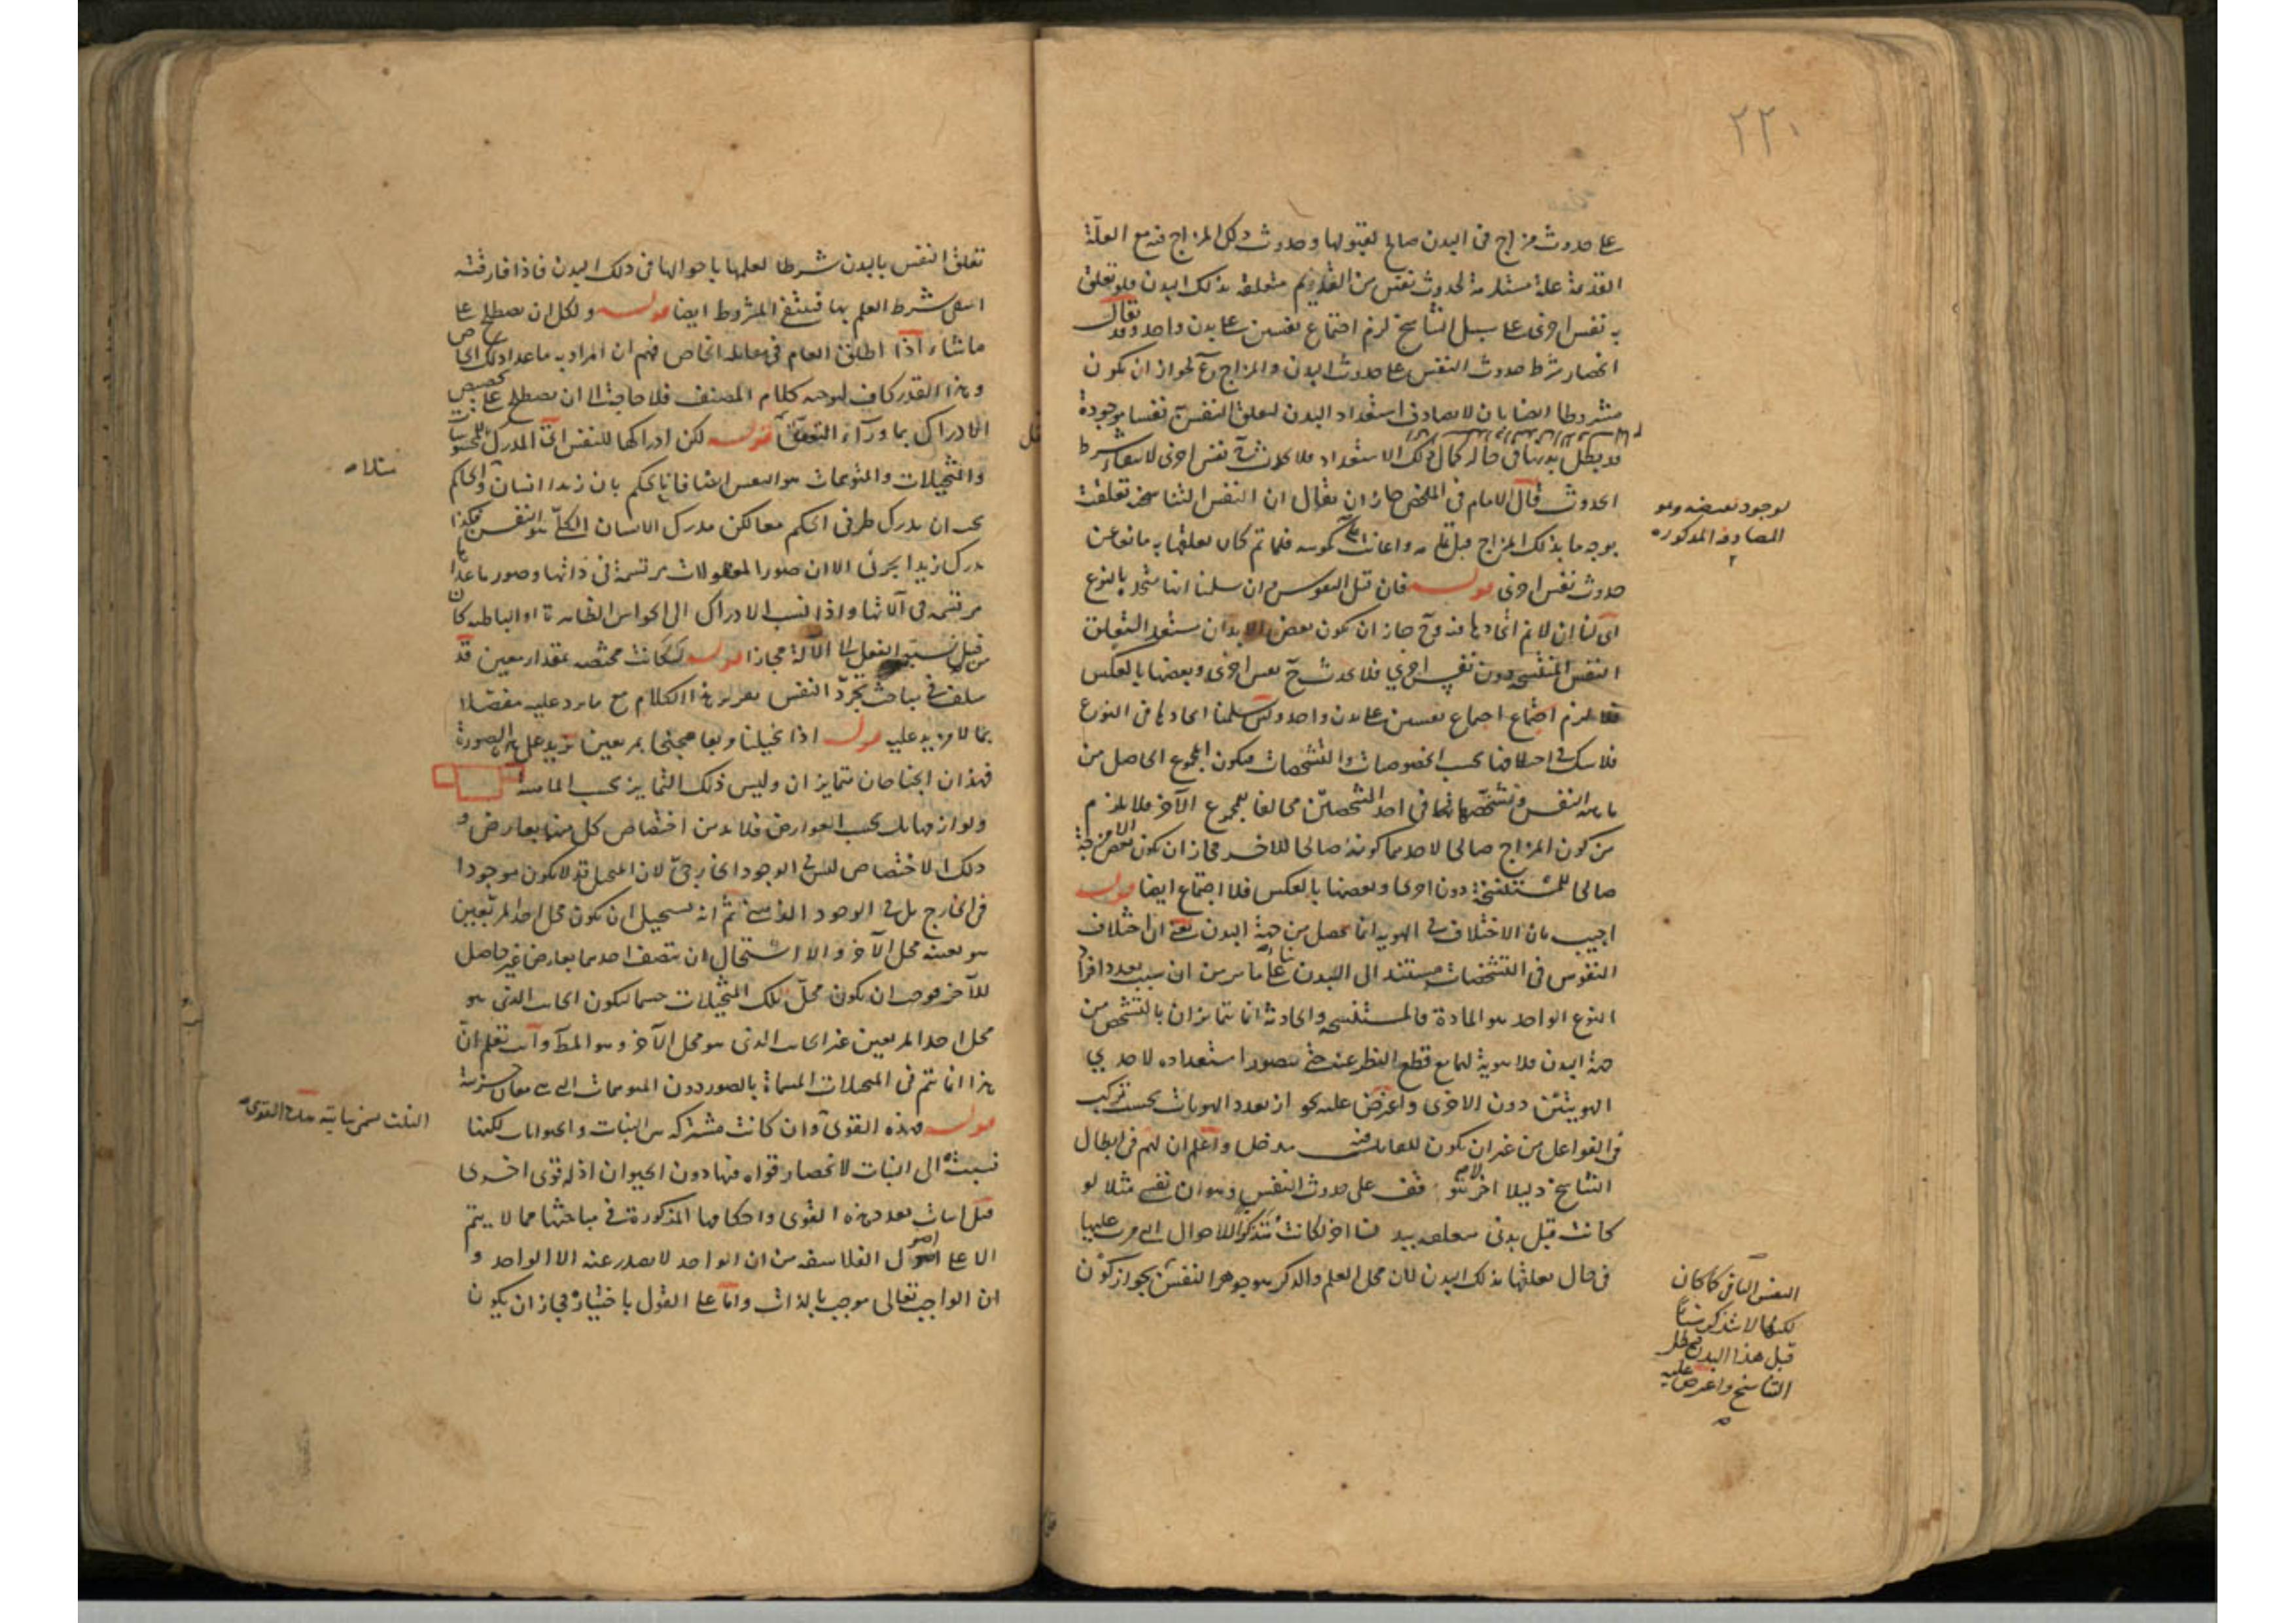 ٢٢٠
على حدوث مزاج فى البدن صالح لقبولها وحدوث ذلك المزاج فيه مع العلة
القديمة علة مستلزمة لحدوث نفس من القديم متعلقة بذلك البدن فلو تعلق
به نفس اخرى على سبيل التناسخ لزم اجتماع نفسين على بدن واحد وقد يقال
انحصار شرط حدوث النفس على حدوث البدن والمزاج مم لجواز ان يكون
مشروطا ايضا بان لا يصادف استعداد البدن لتعلق النفس به نفسا موجودة
قد بطل بدنها فى حالة كمال ذلك الاستعداد فلا يحدث نفس اخرى لانتفاء شرط
الحدوث قال الامام فى الملخص جاز ان يقال ان النفس التناسخية تعلقت
بوجه ما بذلك المزاج قبل فلما تم كان تعلقها به مانعا عن
حدوث نفس اخرى قوله فان قيل النفوس وان سلمنا انها متحدة بالنوع
اى لنا ان لا نم اتحادها فيه وح جاز ان يكون بعض الابدان مستعدا لتعلق
النفس المنتسخة دون نفس اخرى فلا يحدث ح نفس اخرى وبعضها بالعكس
فلا يلزم اجتماع نفسين على بدن واحد ولئن سلمنا اتحادها فى النوع
فلا شك فى اختلافها بحسب الخصوصيات والتشخصات فيكون المجموع الحاصل من
ماهية النفس وتشخصاتها فى احد الشخصين مخالفا لمجموع الآخر فلا يلزم
من كون المزاج صالحا لاحدهما كونه صالحا للاخر فجاز ان يكون بعض الامزجة
صالحا للمستنسخة دون اخرى وبعضها بالعكس فلا اجتماع ايضا قوله
اجيب بان الاختلاف فى الهوية انما يحصل من جهة البدن يعنى ان اختلاف
النفوس فى التشخصات مستند الى البدن بناء على ما مر من ان سبب تعدد افراد
النوع الواحد هو المادة فالمستنسخة والحادثة انما تتمايزان بالتشخص من
جهة البدن فلا هوية لهما مع قطع النظر عنه حتى يتصور استعداده لاحدى
الهويتين دون الاخرى واعترض عليه بجواز تعدد الهويات بحسب تركب
فى الفواعل من غير ان يكون للقابل فيه مدخل واعلم ان لهم فى ابطال
التناسخ دليلا آخر لا يتوقف على حدوث النفس وهو ان نفسى مثلا لو
كانت قبل بدنى متعلقة ببدن آخر لكانت تتذكر الاحوال التى مرت عليها
فى حال تعلقها بذلك البدن لان محل العلم والذكر هو جوهر النفس بجواز كون
لوجود بعينه وهو
المصادفة المذكورة
النفس الباقى كما كان
لكنها لا تتذكر شيئا
قبل هذا البدن فبطل
التناسخ واعترض عليه
تعلق النفس بالبدن شرطا لعلمها باحوالها فى ذلك البدن فاذا فارقته
انتفى شرط العلم بها فينتفى المشروط ايضا قوله ولكل ان يصطلح على
ما شاء اذا اطلق العام فى مقابلة الخاص فهم ان المراد به ما عدا ذلك الخاص
وهذا القدر كاف لتوجيه كلام المصنف فلا حاجة الى ان يصطلح على تخصيص
الادراك بما وراء التعقل قوله لكن ادراكها للنفس اى المدرك للمحسوسات
والتخيلات والمتوهمات هو النفس ايضا فانا نحكم بان زيدا انسان والحاكم
يجب ان يدرك طرفى الحكم معا لكن مدرك الانسان الكلى هو النفس فكذا
مدرك زيدا الجزئى الا ان صور المعقولات مرتسمة فى ذاتها وصور ما عداها
مرتسمة فى آلاتها واذا نسب الادراك الى الحواس الظاهرة او الباطنة كان
من قبيل نسبة الفعل الى الآلة مجازا قوله لكانت مختصة بمقدار معين قد
سلف فى مباحث تجرد النفس تقرير هذا الكلام مع ما يرد عليه مفصلا
بما لا مزيد عليه قوله اذا تخيلنا مربعا مجنحا بمربعين على هذه الصورة
فهذان الجناحان متمايزان وليس ذلك التمايز بحسب الماهية
ولوازمها بل بحسب العوارض فلا بد من اختصاص كل منهما بعارض و
ذلك الاختصاص ليس فى الوجود الخارجى لان المتخيل قد لا يكون موجودا
فى الخارج بل فى الوجود الذهنى ثم انه يستحيل ان يكون محل احد المربعين
هو بعينه محل الآخر والا استحال ان يتصف احدهما بعارض غير حاصل
للآخر فوجب ان يكون محل تلك التخيلات جسما ليكون الجانب الذى هو
محل احد المربعين غير الجانب الذى هو محل الآخر وهو المط وانت تعلم ان
هذا انما يتم فى المتخيلات المسماة بالصور دون الموهومات التى هى معان جزئية
قوله فهذه القوى وان كانت مشتركة بين النبات والحيوانات لكنها
نسبت الى النبات لانحصار قواه فيها دون الحيوان اذ له قوى اخرى
قيل اثبات تعدد هذه القوى واحكامها المذكورة فى مباحثها مما لا يتم
الا على اصول الفلاسفة من ان الواحد لا يصدر عنه الا الواحد و
ان الواجب تعالى موجب بالذات واما على القول باختياره فجاز ان يكون